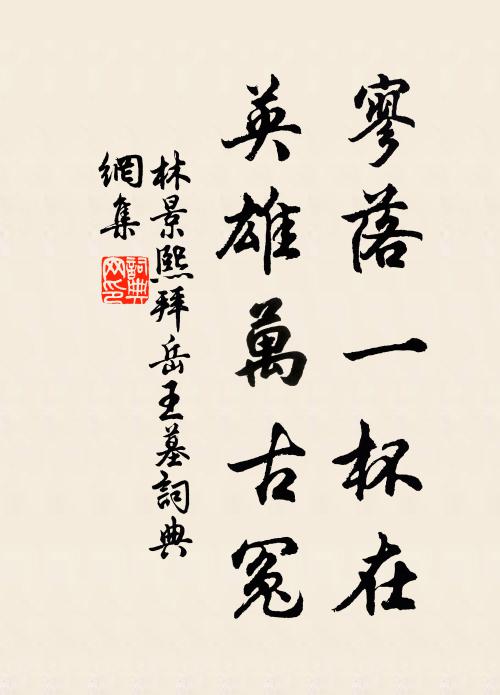 寥落一杯在
英雄萬古冤
林景熙拜岳王墓詞典
網集
詞典網印